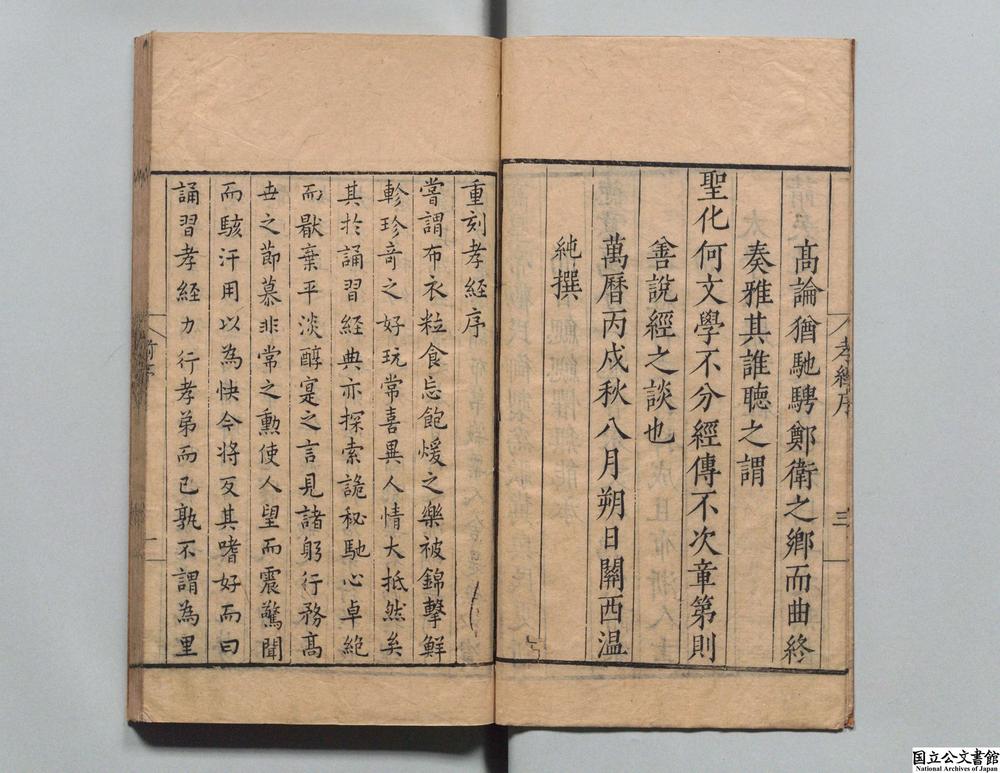 孝經序
三
髙論猶馳騁鄭衛之鄉而曲終
奏雅其誰聽之謂
聖化何文學不分經傳不次章第則
善說經之談也
萬曆丙戌秋八月朔日關西温
純撰
重刻孝經序
嘗謂布衣粒食忘飽煖之樂被錦擊鮮
軫珍竒之好玩常喜異人情大抵然矣
其扵誦習經典亦探索詭秘馳心卓絶
而厭棄平淡醇寔之言見諸躬行務髙
世之節慕非常之勳使人望而震驚聞
而駭汗用以為快今将反其嗜好而曰
誦習孝經力行孝弟而已孰不謂為里
前序
一
国立公文書館
National Archives of Japan